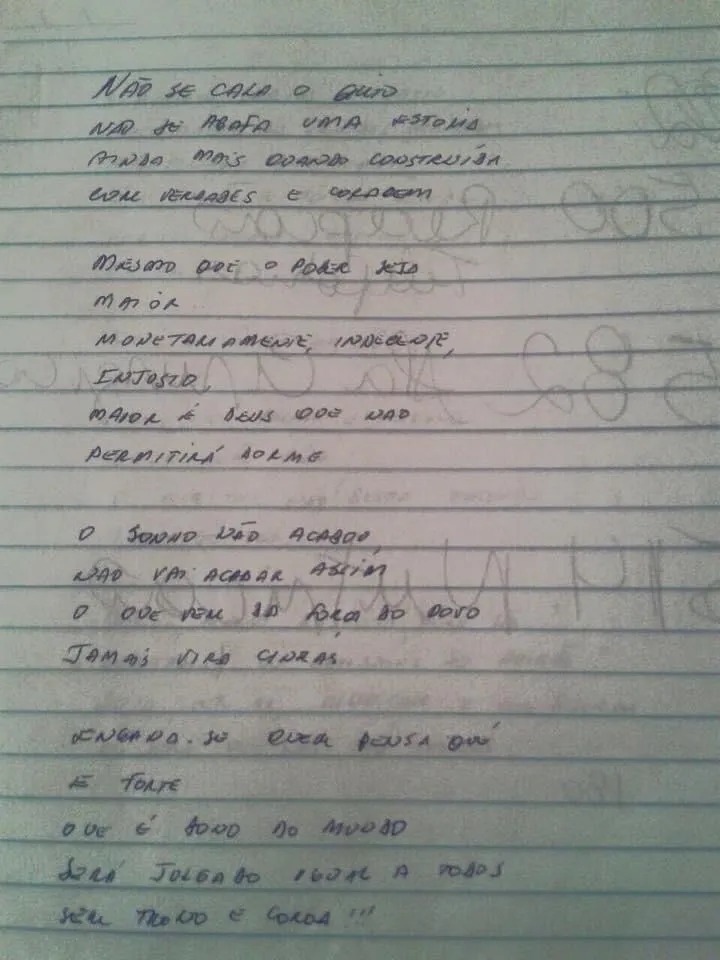 NÃO SE CALA O GRITO
NÃO SE ABAFA UMA ESTORIA
AINDA MAIS QUANDO CONSTRUIDA
COM VERDADES E CORAGEM
MESMO QUE O PODER SEJA
MAIOR
MONETAMAMENTE, INDECENTE,
INJUSTO,
MAIOR É DEUS QUE NÃO
PERMITIRÁ DORME
O SONHO NÃO ACABOU,
NÃO VAI ACABAR ASSIM
O QUE VEM DA FORÇA DO POVO
JAMAIS VIRA CINZAS
ENGANA-SE QUEM PENSA QUE
E FORTE
QUE É DONO DO MUNDO
SERÁ JULGADO IGUAL A TODOS
SEM TRONO E COROA !!!